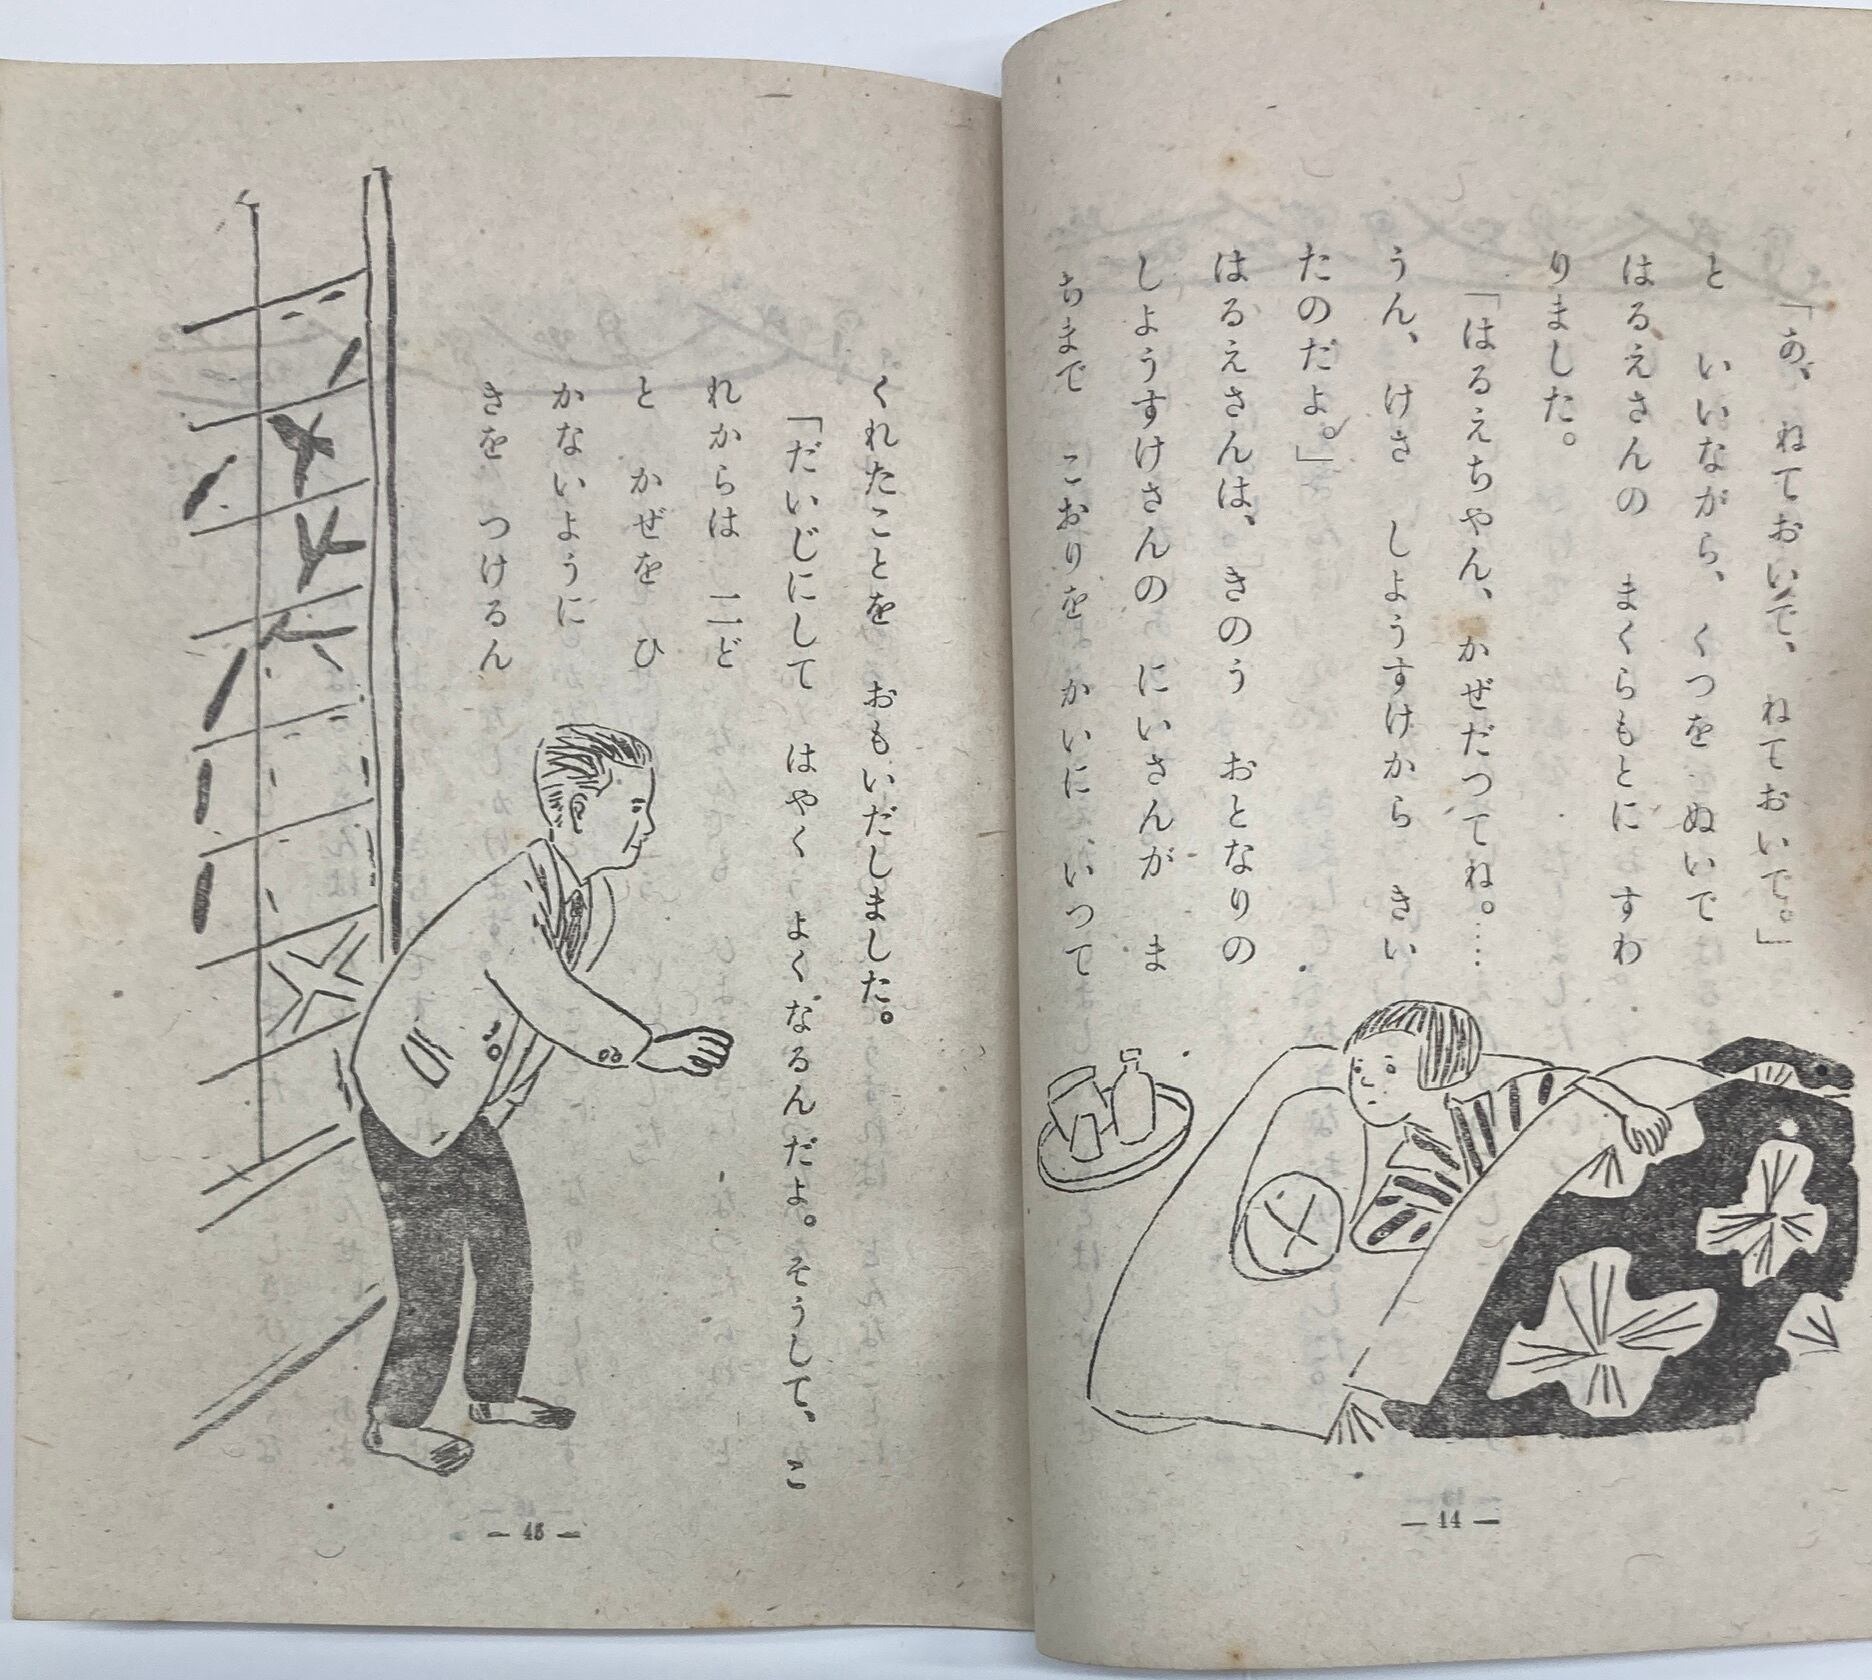 「あ、ねておいで、ねておいで。」
と いいながら、くつを ぬいで
はるえさんの まくらもとに すわ
りました。
「はるえちやん、かぜだつてね。……
うん、けさ しようすけから きい
たのだよ。」
はるえさんは、きのう おとなりの
しようすけさんの にいさんが ま
ちまで こおりを かいに いつて
— 44 —
くれたことを おもいだしました。
「だいじにして はやく よくなるんだよ。そうして、こ
れからは 二ど
と かぜを ひ
かないように
きを つけるん
— 45 —